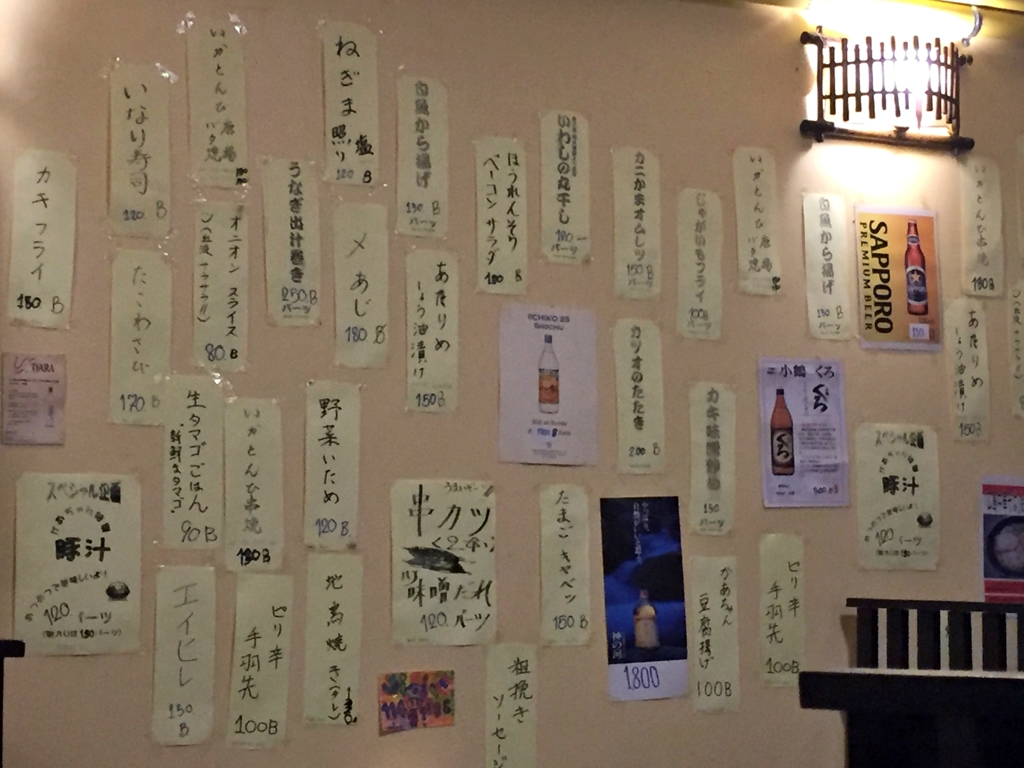 カキフライ
150 B
いなり寿司
120 B
いかとんび唐揚
バタ焼
ねぎま 塩
照り
120 B
白魚から揚げ
130 B
パーツ
ほうれんそう
ベーコン サラダ
180 B
いわしの丸干し
180
カニかまオムレツ
150 B
パーツ
じゃがいもフライ
100 B
パーツ
いかとんび 唐揚
バタ焼
白魚から揚げ
130 B
パーツ
SAPPORO
PREMIUM BEER
いかとんび串焼
180 B
たこわさび
170 B
オニオン スライス
80 B
うなぎ出汁巻き
250 B
パーツ
〆あじ
180 B
あたりめ
しょう油漬け
150 B
IICHIKO 25
SHOCHU
カツオのたたき
200 B
小鶴 くろ
くろ
あたりめ
しょう油漬け
150 B
生タマゴごはん
新鮮タマゴ
90 B
いかとんび串焼
180 B
野菜いため
120 B
スペシャル企画
かあちゃん特製
豚汁
あつあつで美味しいよ!
120 バーツ
串カツ
<2本>
味噌だれ
120 バーツ
たまごキャベツ
150 B
1800
かあちゃん
豆腐揚げ
100 B
ピリ辛
手羽先
100 B
スペシャル企画
かあちゃん特製
豚汁
あつあつで美味しいよ!
120 バーツ
エイヒレ
150
B
ピリ辛
手羽先
100 B
地鳥焼き(タレ)
粗挽き
ソーセージ